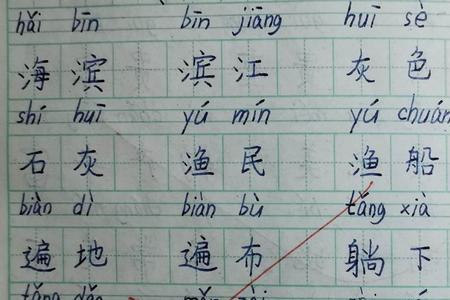 hǎi bīn bīn jiāng huī sè
海滨 滨江 灰色
shí huī yú mín yú chuán
石灰 渔民 渔船
biàn dì biàn bù tǎng xià
遍地 遍布 躺下
tǎng dǎo